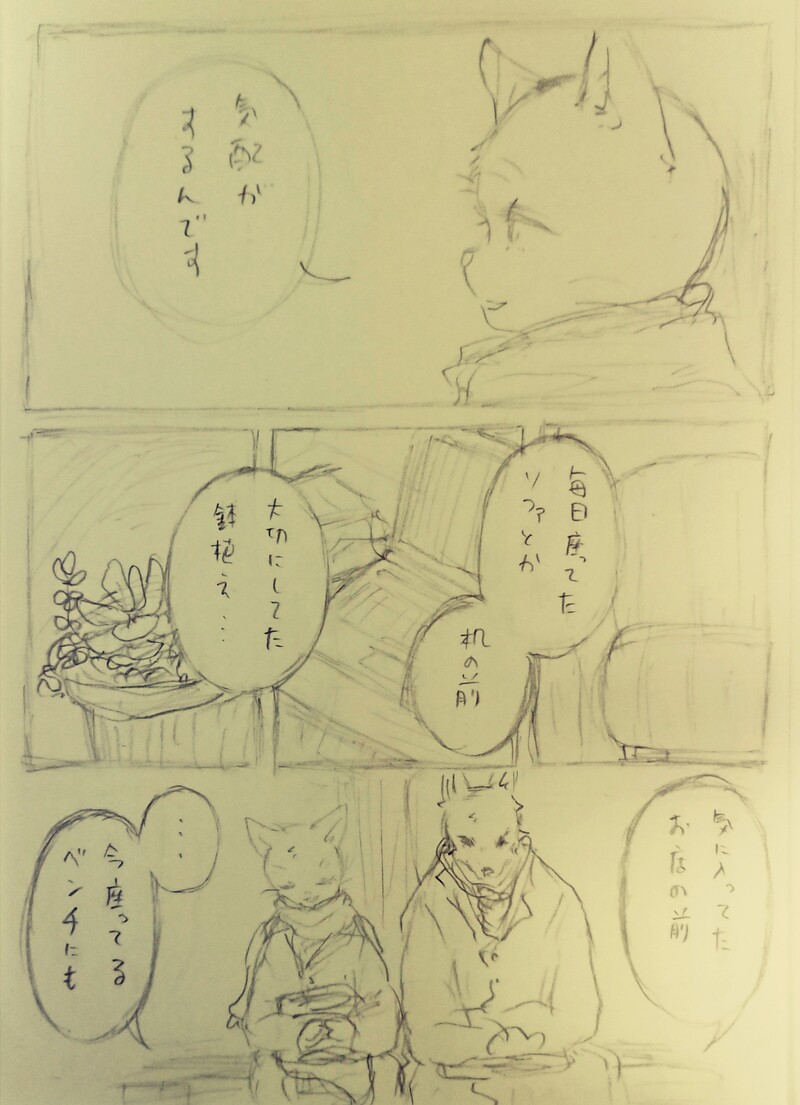 気配が
するんです
毎日座ってた
ソファとか
机の前
大切にしてた
鉢植え…
気に入ってた
お店の前
…
今座ってる
ベンチにも